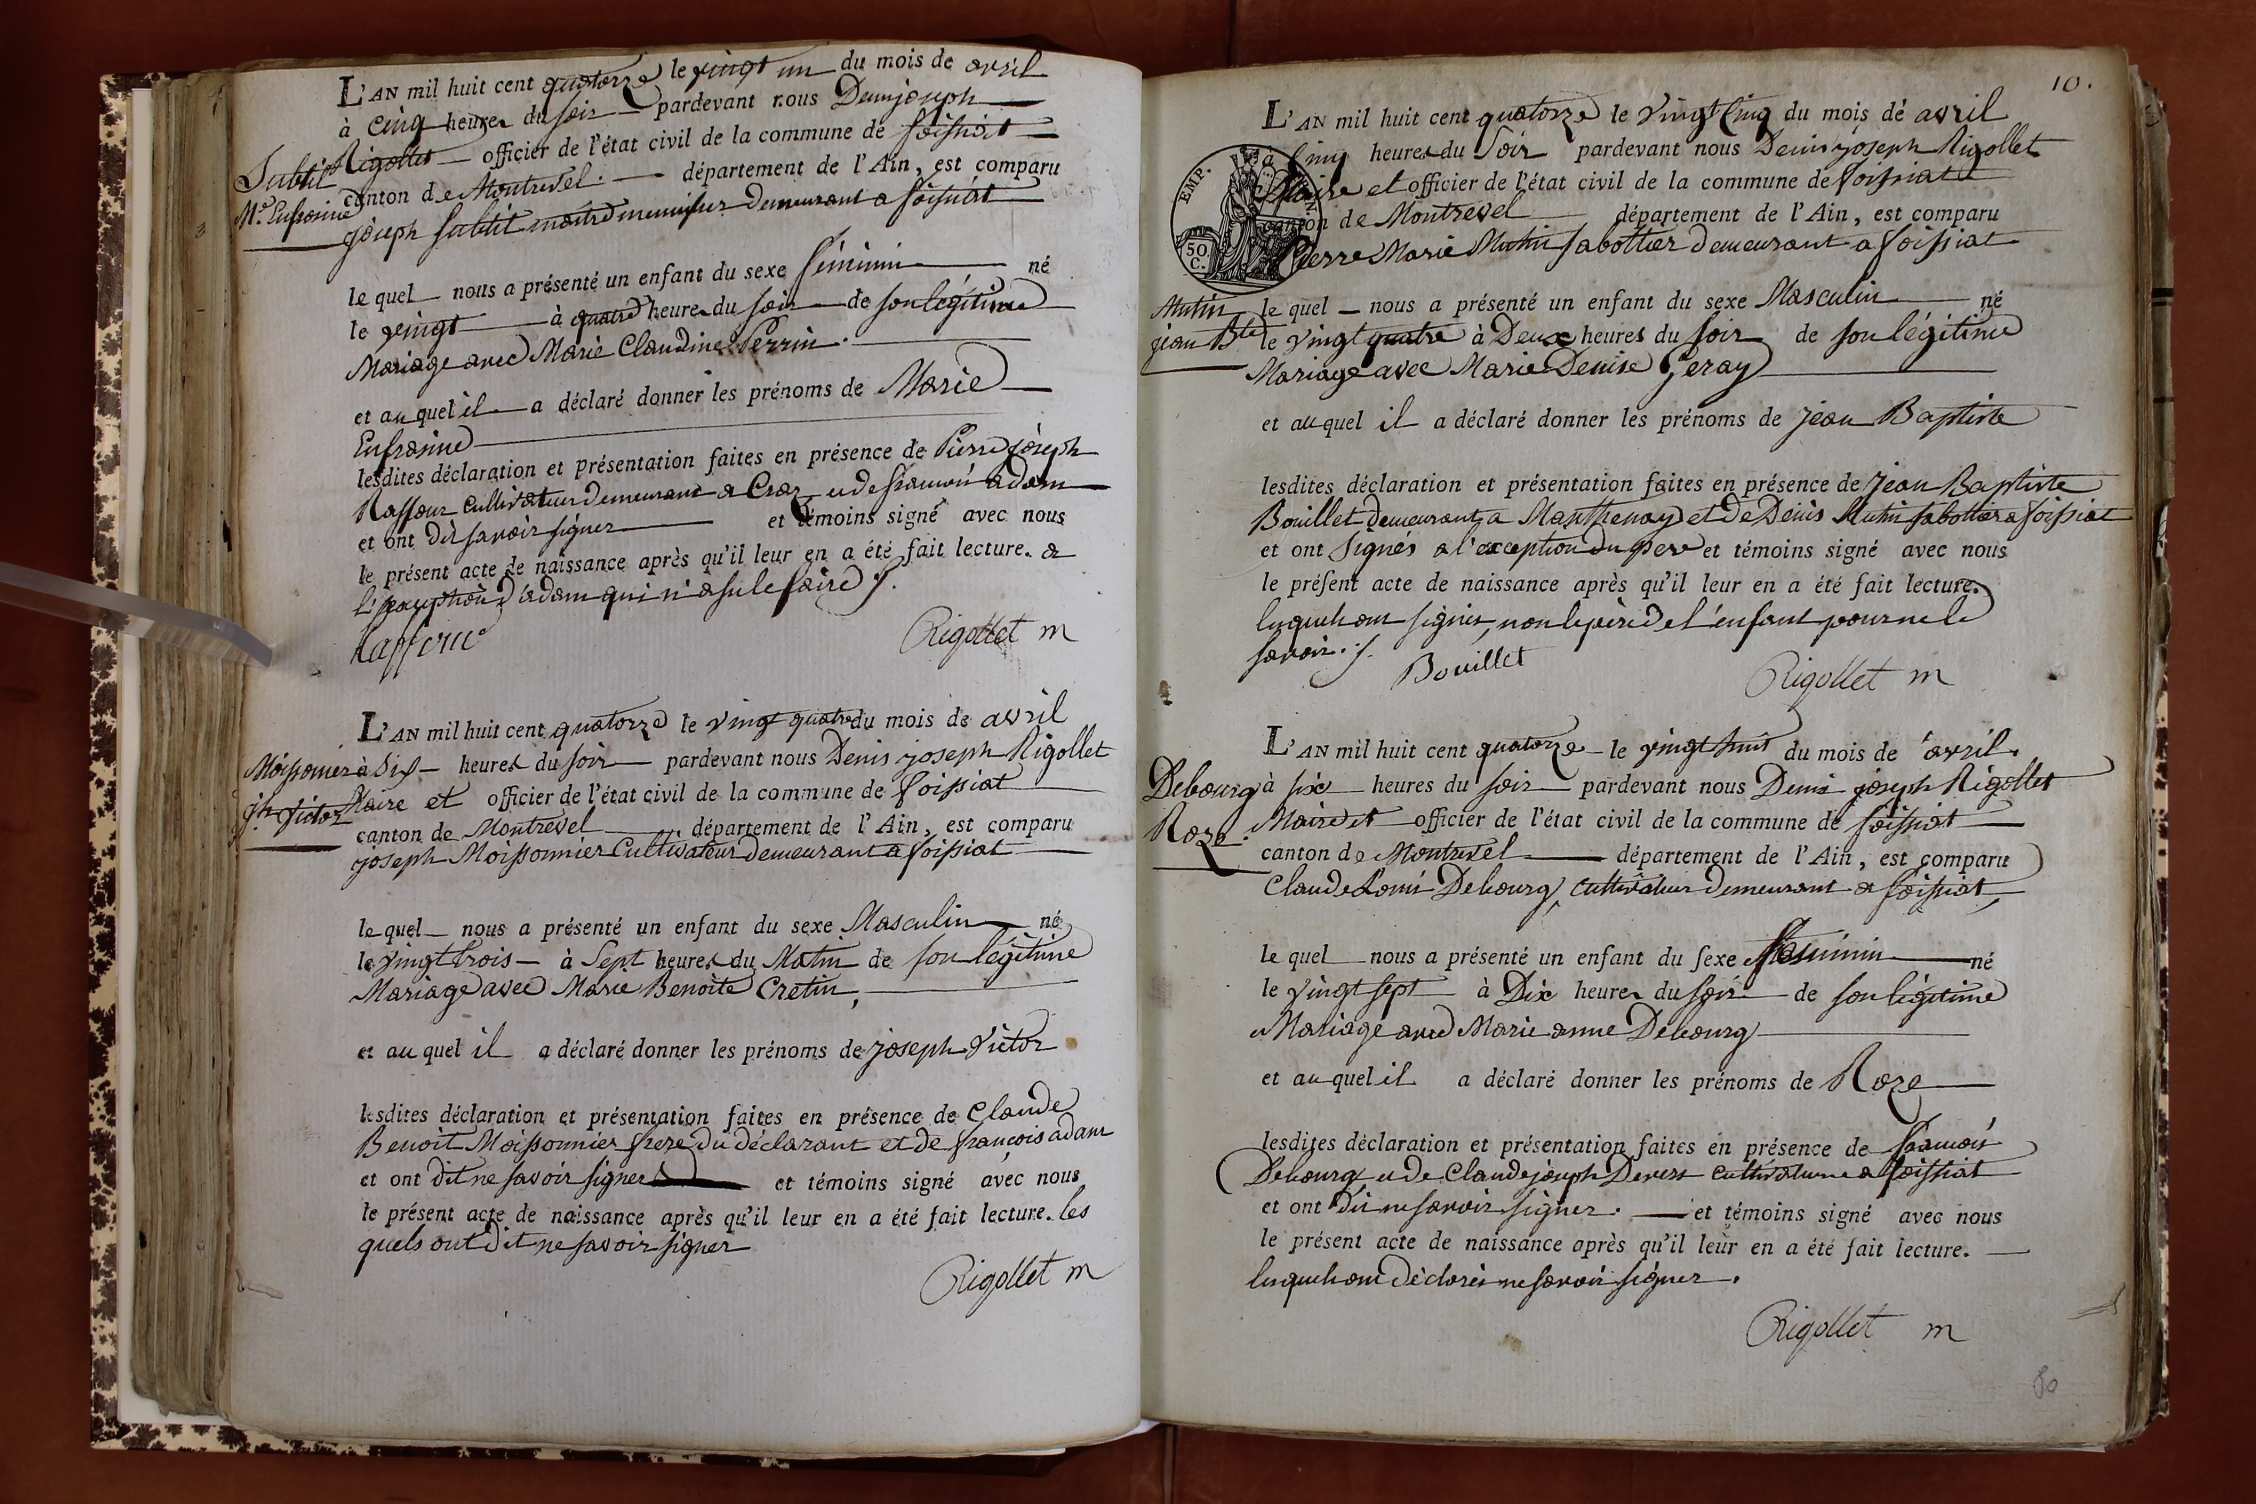 L'AN mil huit cent quatorze le vingt un du mois de avril
à cinq heures du soir pardevant nous Denis joseph
Rigollet officier de l'état civil de la commune de foissiat
canton de Montrevel. département de l'Ain, est comparu
joseph subtil maitre menuisier demeurant a foissiat
Subtil
Me. Eufrosine
le quel nous a présenté un enfant du sexe féminin né
le vingt à quatre heures du soir de son légitime
Mariage avec Marie Claudine Perrin.
et au quel il a déclaré donner les prénoms de Marie
Eufrosine
lesdites déclaration et présentation faites en présence de Pierre joseph
cultivateur demeurant a Cras et de françois adam
et ont dit savoir signer et témoins signé avec nous
le présent acte de naissance après qu'il leur en a été fait lecture. a
l'exception d'adam qui n'a su le faire ./.
Rigollet m
L'AN mil huit cent quatorze le vingt quatre du mois de avril
à Six heures du soir pardevant nous Denis joseph Rigollet
Maire et officier de l'état civil de la commune de foissiat
canton de Montrevel département de l'Ain, est comparu
joseph Moissonnier Cultivateur demeurant a foissiat
Moissonnier
jh victor
le quel nous a présenté un enfant du sexe Masculin né
le vingt trois à Sept heures du Matin de son légitime
Mariage avec Marie Benoite Cretin,
et au quel il a déclaré donner les prénoms de joseph Victor
lesdites déclaration et présentation faites en présence de Claude
Benoit Moissonnier frere du déclarant et de françois adam
et ont dit ne savoir signer et témoins signé avec nous
le présent acte de naissance après qu'il leur en a été fait lecture. les
quels ont dit ne savoir signer
Rigollet m
10.
L'AN mil huit cent quatorze le vingt cinq du mois de avril
à Cinq heures du Soir pardevant nous Denis joseph Rigollet
Maire et officier de l'état civil de la commune de foissiat
canton de Montrevel département de l'Ain, est comparu
Pierre Marie Mutin sabottier demeurant a foissiat
EMP.
50.
C.
Mutin
jean Bte
le quel nous a présenté un enfant du sexe Masculin né
le vingt quatre à Deux heures du soir de son légitime
Mariage avec Marie Denise Geray
et au quel il a déclaré donner les prénoms de jean Baptiste
lesdites déclaration et présentation faites en présence de jean Baptiste
Bouillet demeurant a Manthenay et de Denis Mutin sabottier a foissiat
et ont Signés a l'exception du pere et témoins signé avec nous
le présent acte de naissance après qu'il leur en a été fait lecture.
lesquels ont signés, non le père de l'enfant pour ne le
savoir ./.
Bouillet
Rigollet m
L'AN mil huit cent quatorze le vingt huit du mois de avril.
à six heures du soir pardevant nous Denis joseph Rigollet
Maire et officier de l'état civil de la commune de foissiat
canton de Montrevel département de l'Ain, est comparu
Claude Debourg, cultivateur demeurant a foissiat,
Debourg
Roze.
le quel nous a présenté un enfant du sexe féminin né
le vingt sept à Dix heures du soir de son légitime
Mariage avec Marie anne Debourg
et au quel il a déclaré donner les prénoms de Roze
lesdites déclaration et présentation faites en présence de françois
Debourg et de Claude joseph cultivateurs a foissiat
et ont dit ne savoir signer. et témoins signé avec nous
le présent acte de naissance après qu'il leur en a été fait lecture.
lesquels ont déclarés ne savoir signer.
Rigollet m